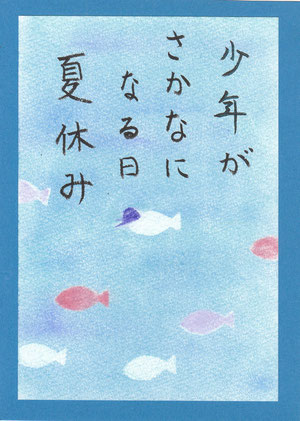 少年が
さかなに
なる日
夏休み